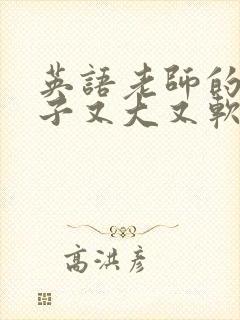 英語老師的
子又大又軟
高洪彥